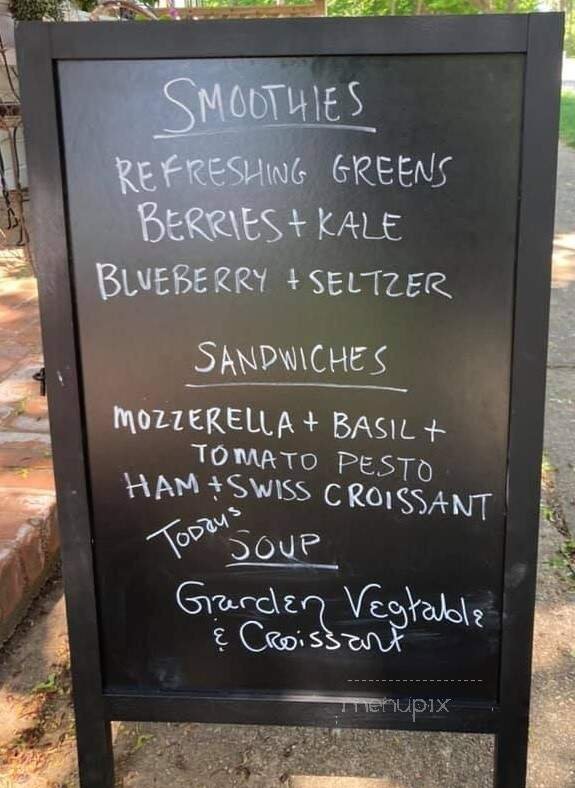 SMOOTHIES
REFRESHING GREENS
BERRIES + KALE
BLUEBERRY + SELTZER
SANDWICHES
MOZZERELLA + BASIL +
TOMATO PESTO
HAM + SWISS CROISSANT
TODAY'S
SOUP
Garden Vegtable
& Croissant
menupix